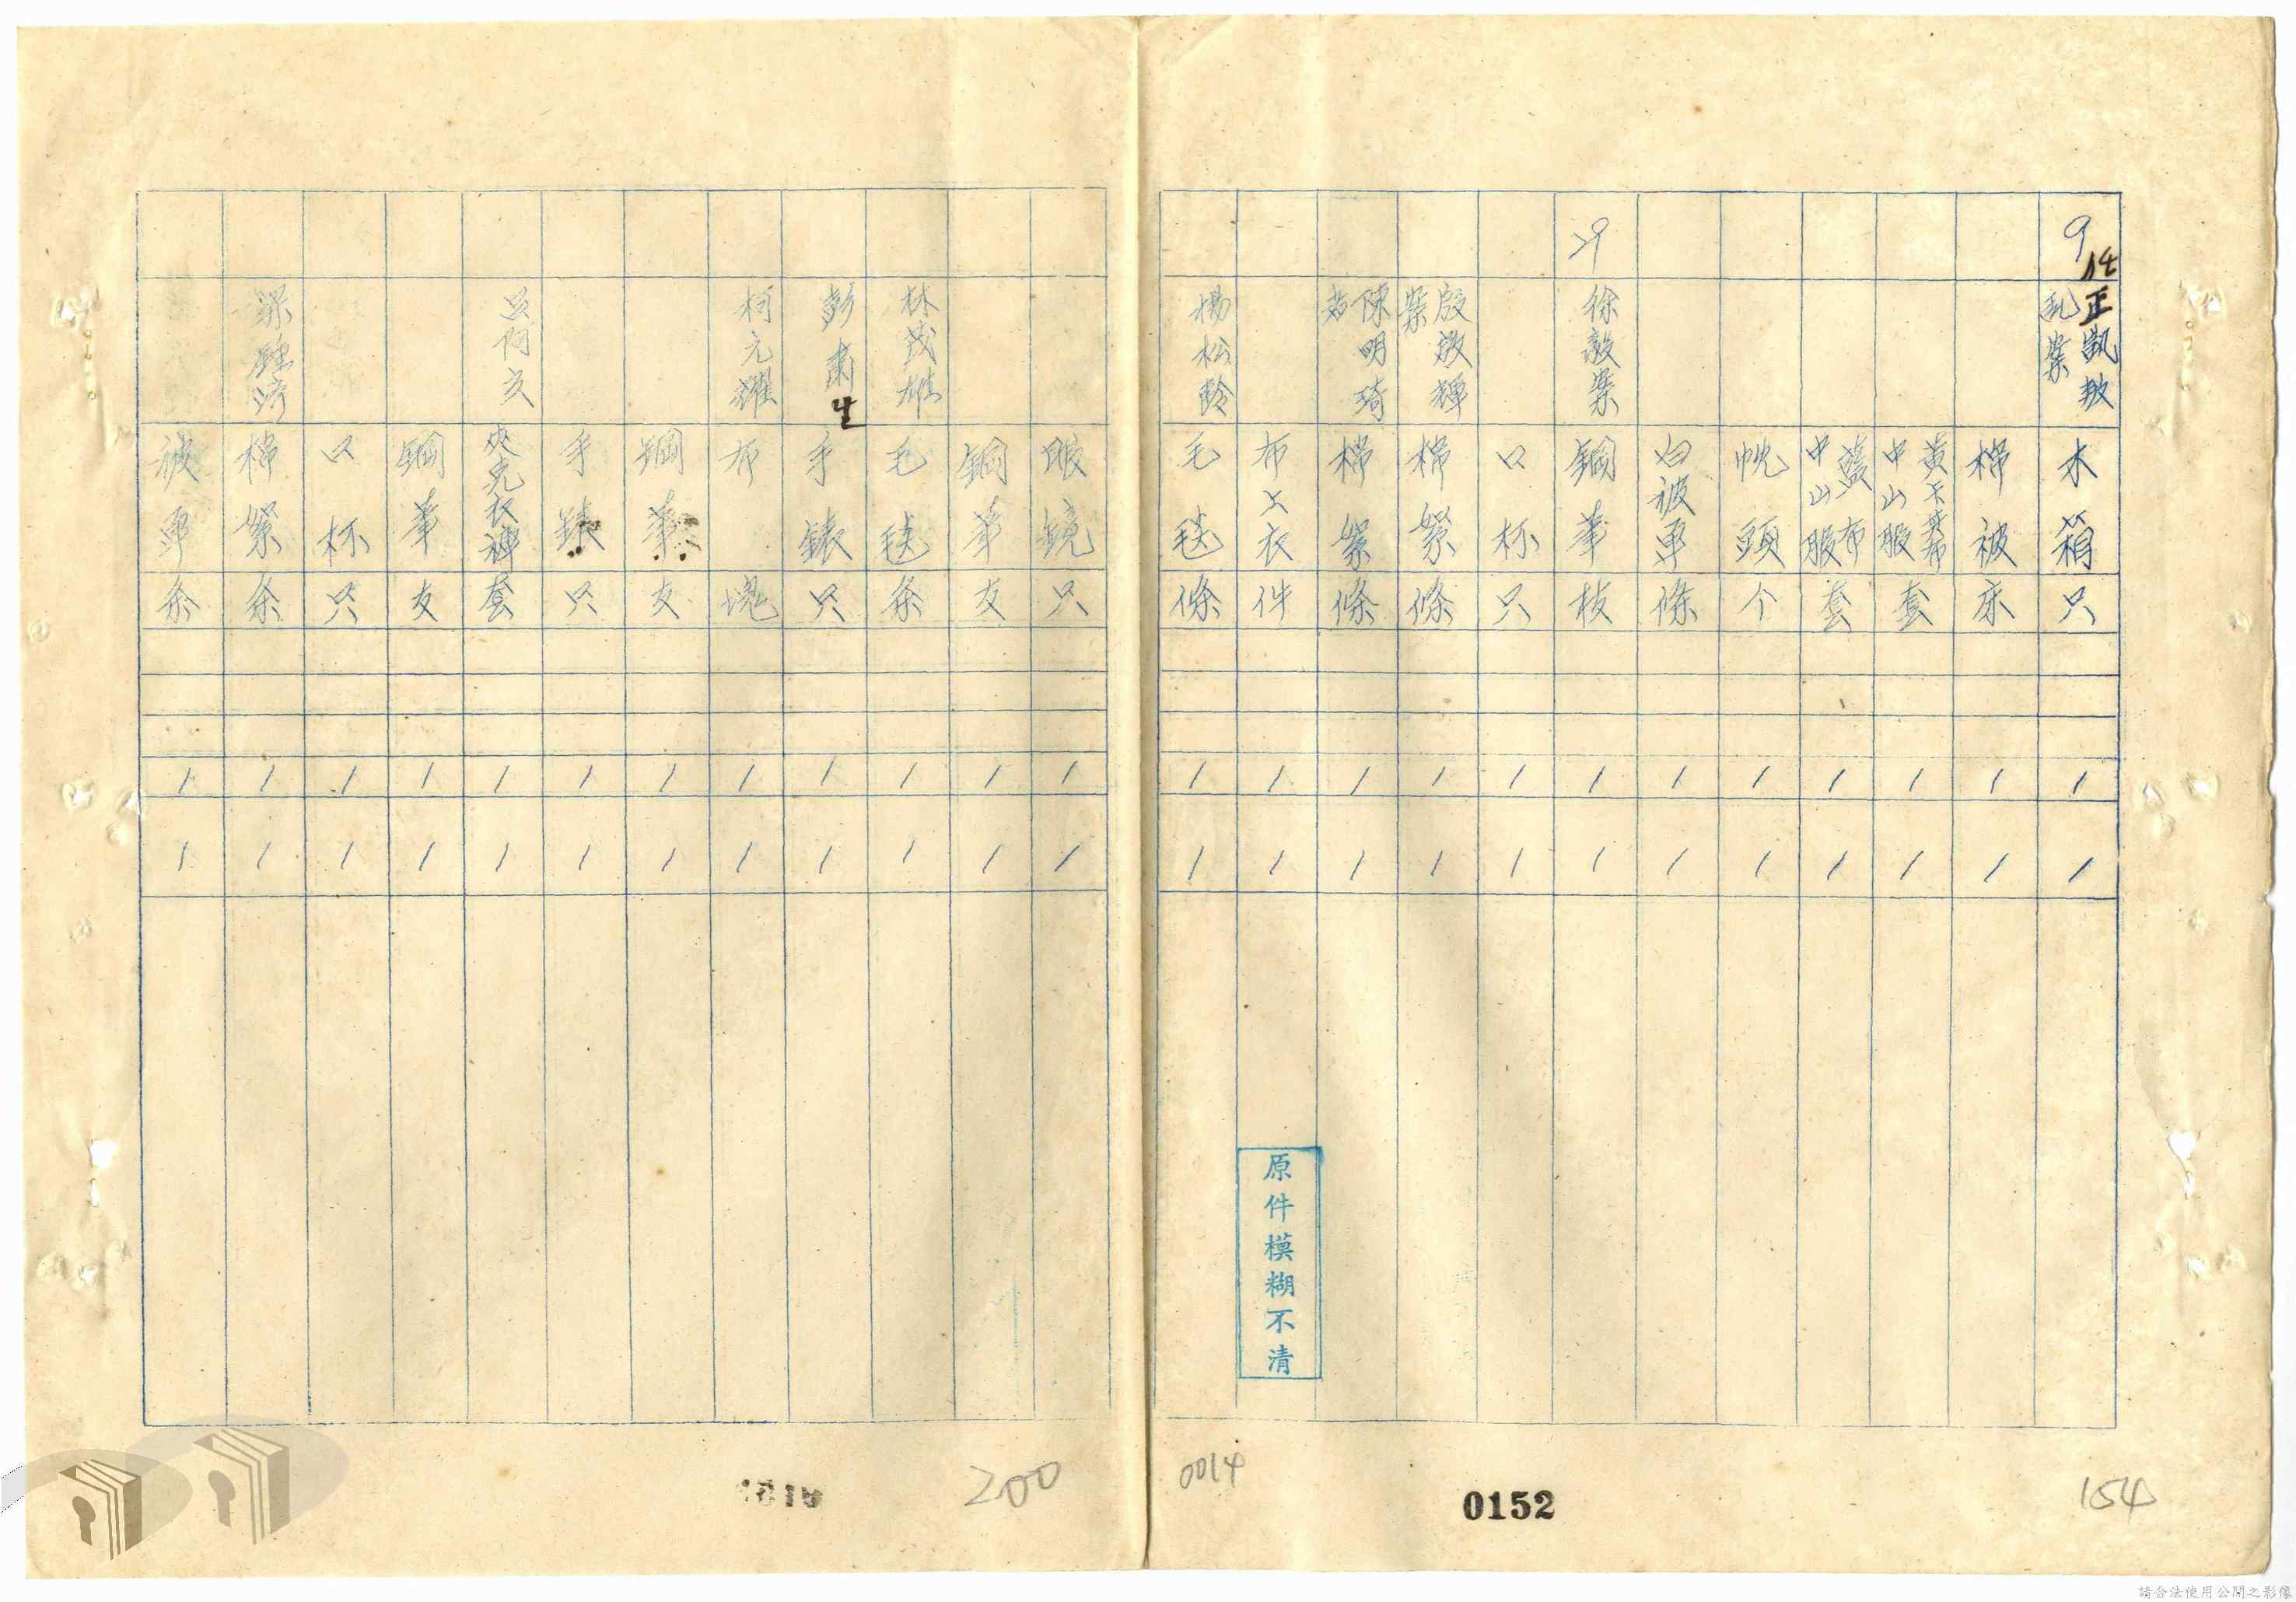 9
任正凱叛乱案
木箱
只
1
1
棉被
床
1
1
黃卡其布中山服
套
1
1
藍布中山服
套
1
1
枕頭
个
1
1
白被單
條
1
1
29
徐毅案
鋼筆
枝
1
1
口杯
只
1
1
殷啟輝案
棉絮
條
1
1
陳明琦
棉絮
條
1
1
布上衣
件
1
1
楊松齡
毛毯
條
1
1
原件模糊不清
0014
0152
154
眼鏡
只
1
1
鋼筆
支
1
1
林茂雄
毛毯
条
1
1
彭肅生
手錶
只
1
1
柯元耀
布
塊
1
1
鋼筆
支
1
1
手錶
只
1
1
吳阿文
夾克衣褲
套
1
1
鋼筆
支
1
1
口杯
只
1
1
梁
棉絮
条
1
1
被單
条
1
1
200
請合法使用公開之影像